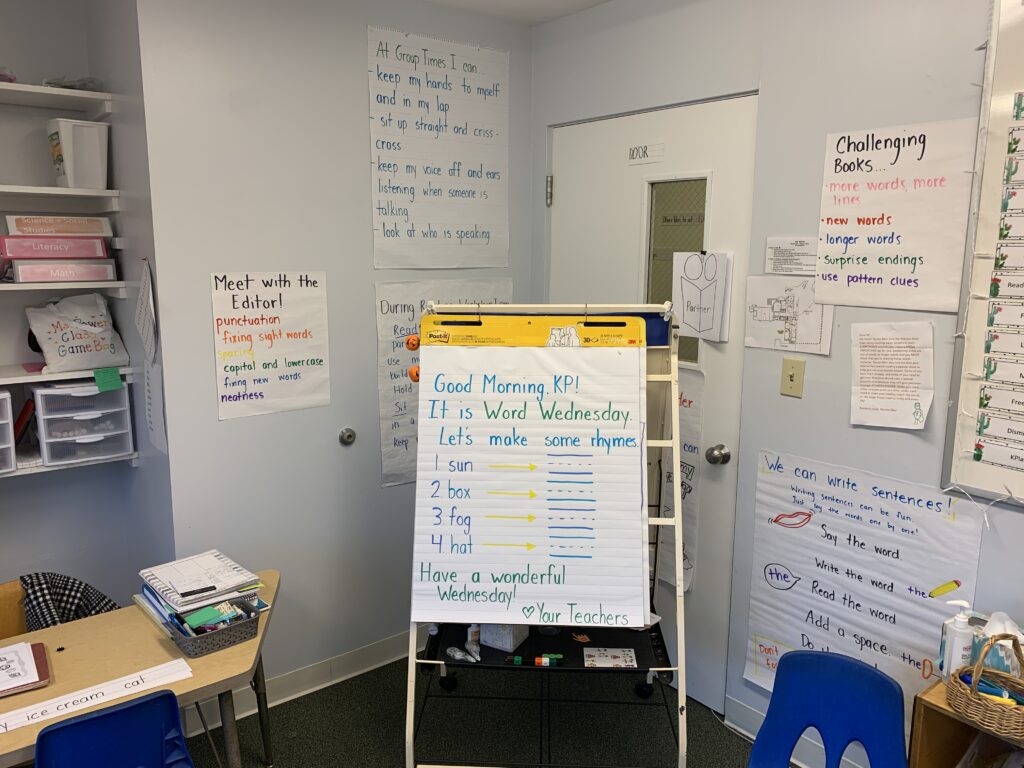 At Group Times I can
- keep my hands to myself
and in my lap
- sit up straight and criss-
cross
- keep my voice off and ears
listening when someone is
talking
- look at who is speaking
Science + Social
Studies
Literacy
Math
Class
Game Bag
Meet with the
Editor!
punctuation
fixing sight words
spacing
capital and lowercase
fixing new words
neatness
During
Read
Use
Hold
Sit
in a
Keep
Post-it
Good Morning, KP!
It is Word Wednesday.
Let's make some rhymes
1. sun
2. box
3. fog
4. hat
Have a wonderful
Wednesday!
♡ Your Teachers
DOOR
Partner
can
Challenging
Books...
· more words, more
lines
· new words
· longer words
· surprise endings
· use pattern clues
We can write sentences!
Writing sentences can be fun.
Just say the words one by one!
Say the word
Write the word the
the
Read the word
Add a space. the
Don't
Do
ice cream cat